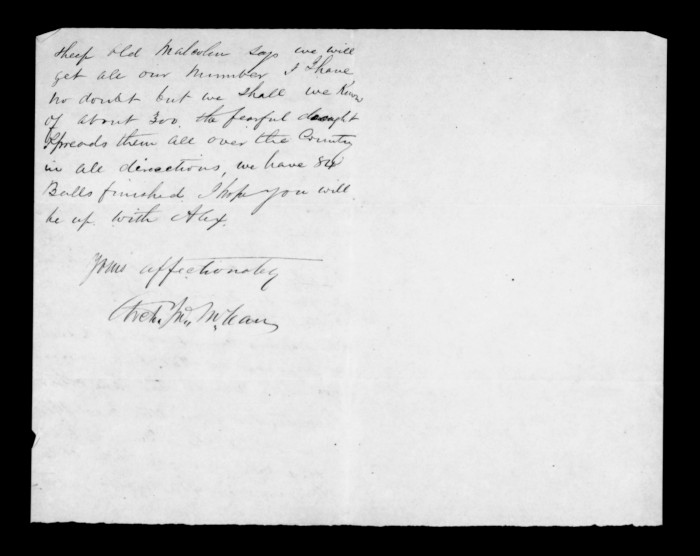 sheep old Malcolm says we will
get all our number I I have
no doubt but we shall we know
of about 300. the fearful drought
spreads them all over the Country
in all directions, we have 84
Bales finished I hope you will
be up with Alex.
Yours affectionately
Archd. Jno. McLean